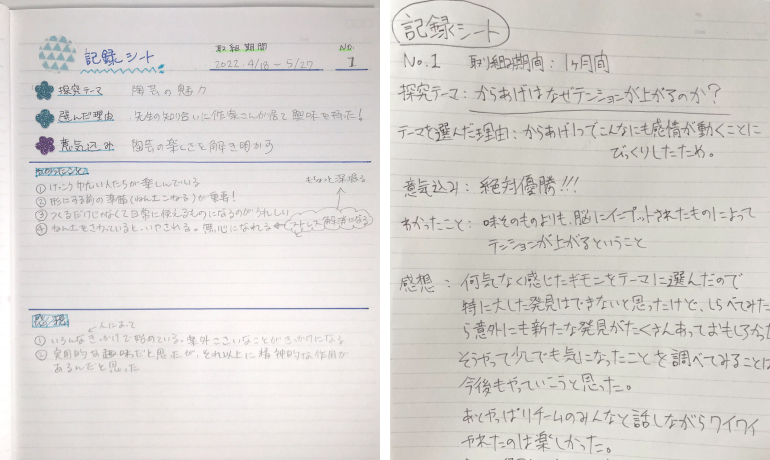 記録シート
取組期間
2022.4/18-5/27
No.
1
探究テーマ 陶芸の魅力
選んだ理由 先生の知り合いに作家さんが居て興味を持った!
意気込み 陶芸の楽しさを解き明かす
わかったこと
もちょっと深堀る
①けっこうわかい人たちが楽しんでいる
②形にする前の準備(ねん土こねる)が重要!
③つくるだけじゃなくて日常に使えるものになるのがうれしい
④ねん土をさわっていると、いやされる。無心になれる ストレス解消になる
感想
人によって
①いろんなきっかけで始めている。案外ささいなことがきっかけになる
②実用的な趣味だと思たが、それ以上に精神的な作用が
あるんだと思った
記録シート
No.1 取り組み期間:1ヶ月間
探究テーマ:からあげはなぜテンションが上がるのか?
テーマを選んだ理由:からあげ1つでこんなにも感情が動くことに
びっくりしたため。
意気込み:絶対優勝!!!
わかったこと:味そのものよりも、脳にインプットされたものによって
テンションが上がるということ
感想:何気なく感じたギモンをテーマに選んだので
特に大した発見はできないと思ったけど、しらべてみた
ら意外にも新たな発見がたくさんあっておもしろかった
そうやって少しでも気になったことを調べてみることは
今後もやっていこうと思った。
あとやっぱりチームのみんなと話しながらワイワイ
やれたのは楽しかった。